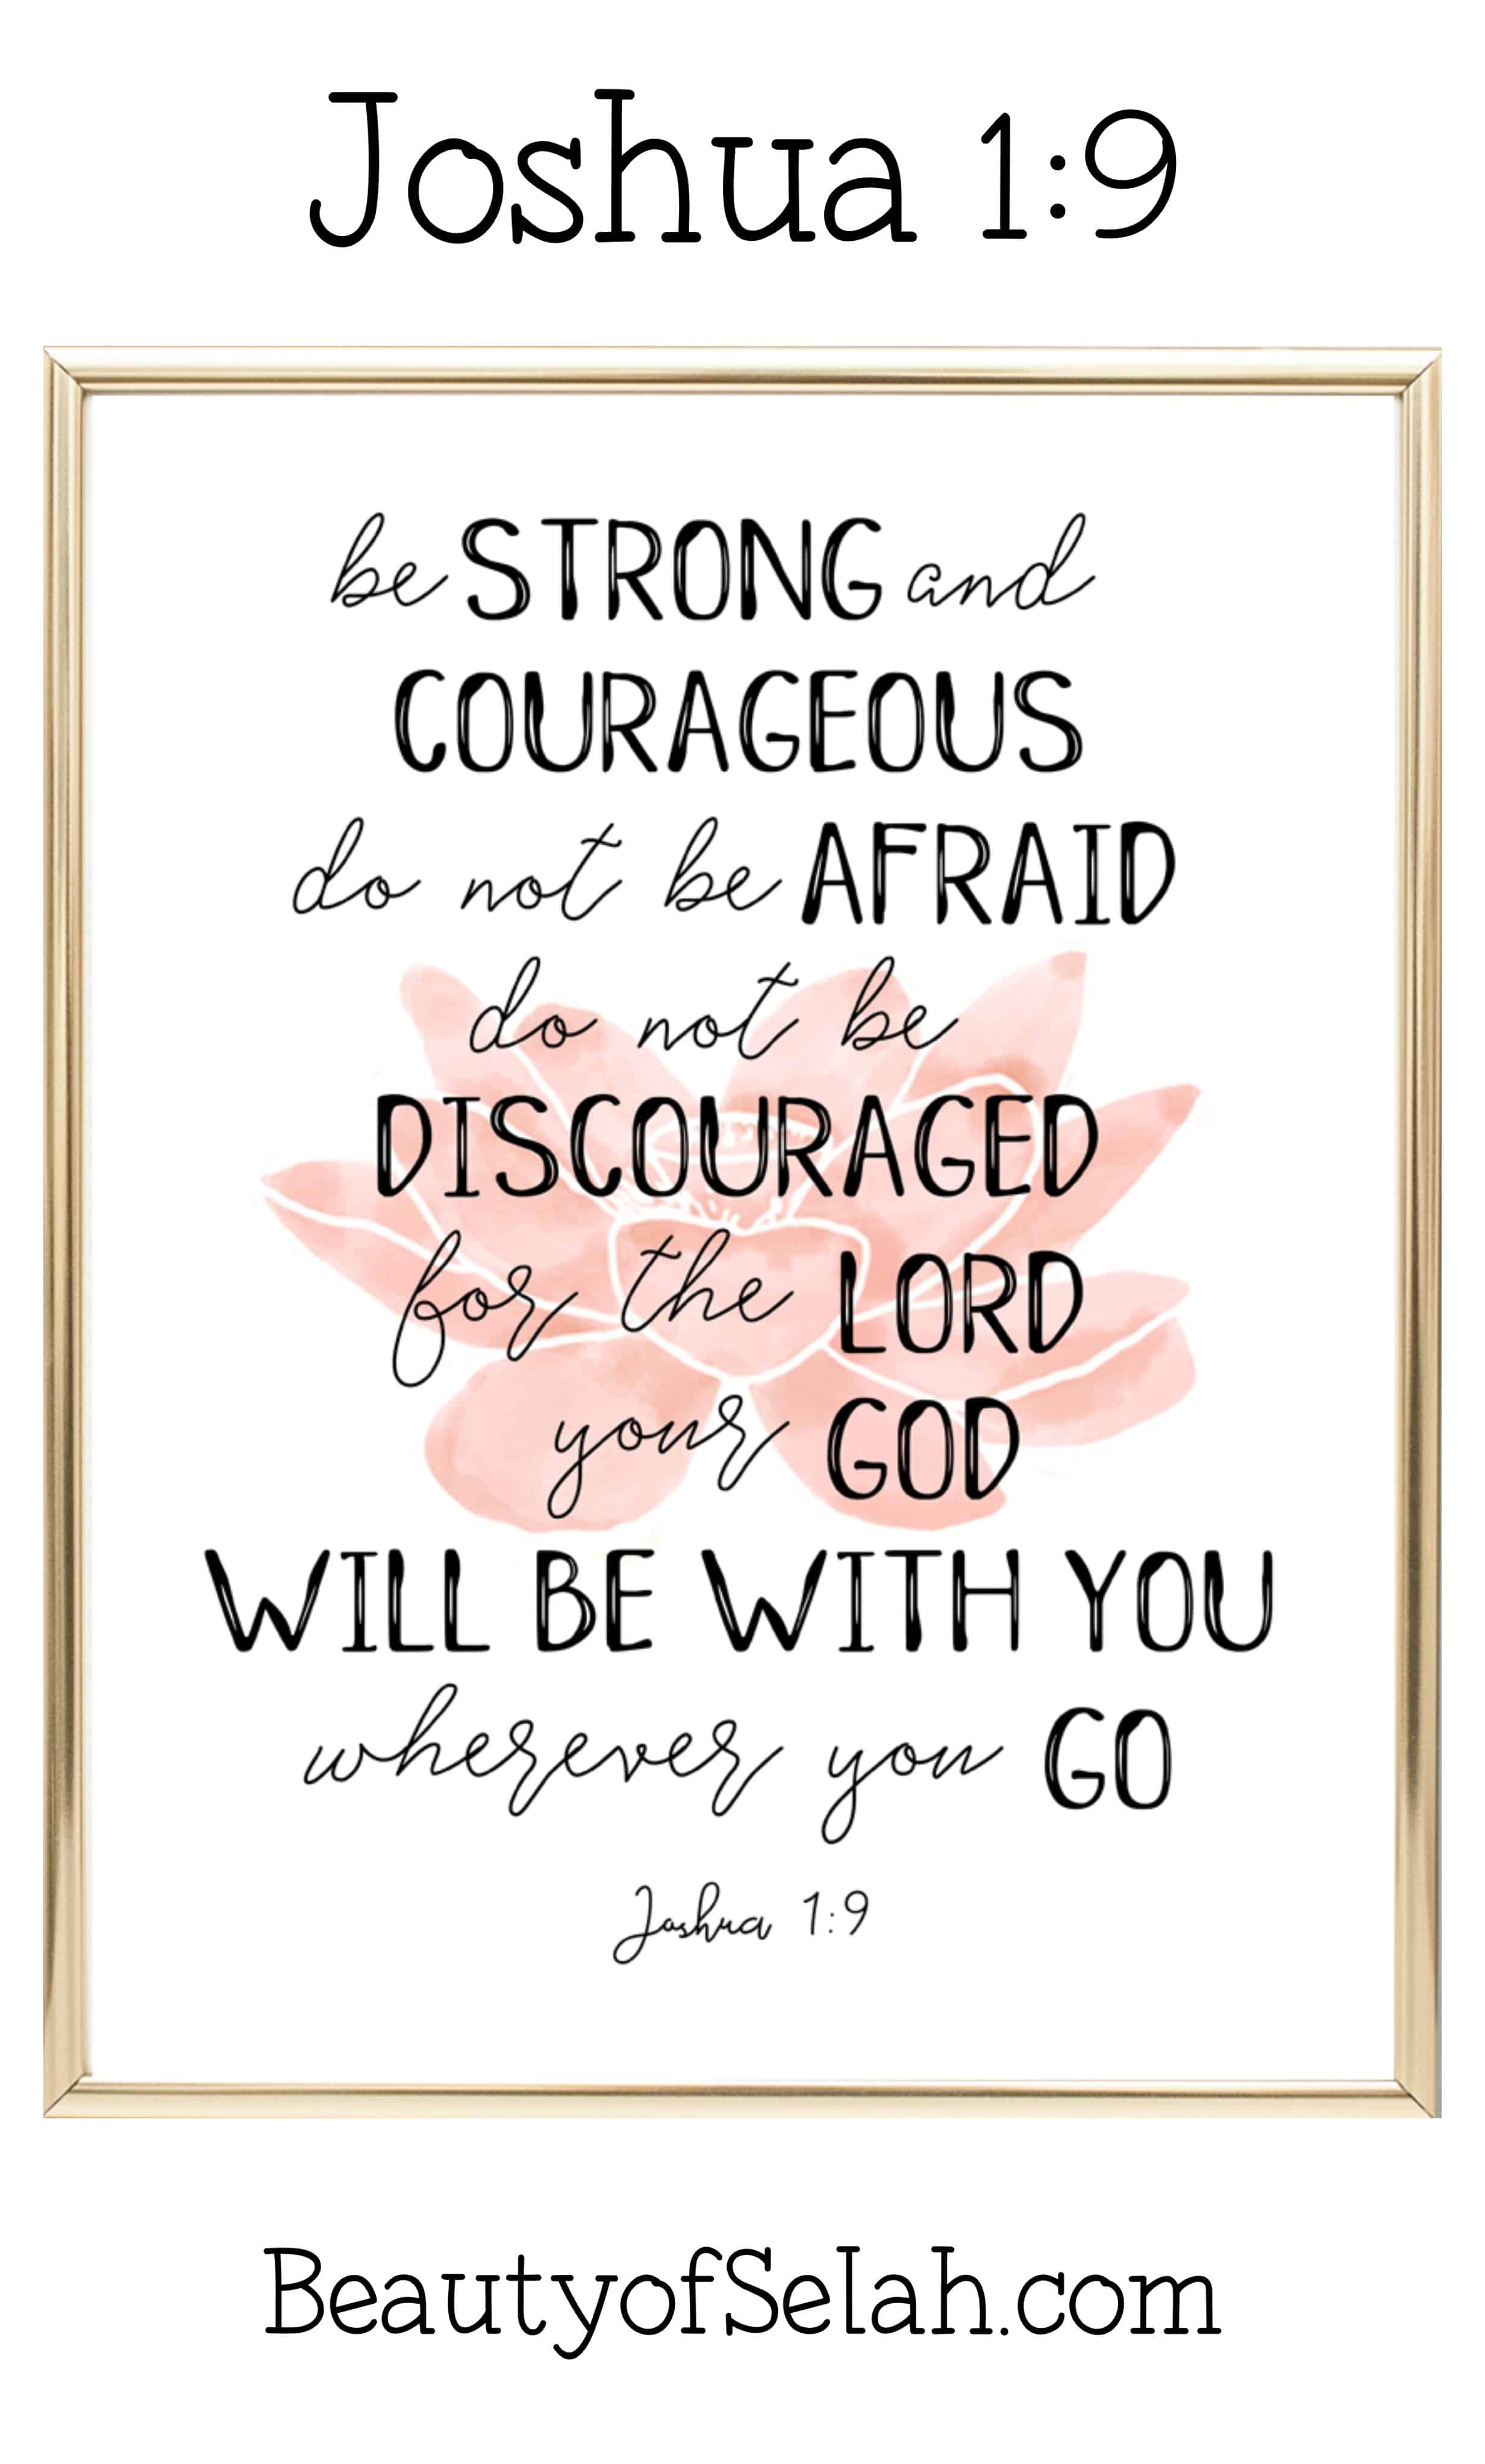 Joshua 1:9
be STRONG and
COURAGEOUS
do not be AFRAID
do not be
DISCOURAGED
for the LORD
your GOD
WILL BE WITH YOU
wherever you GO
Joshua 1:9
BeautyofSelah.com